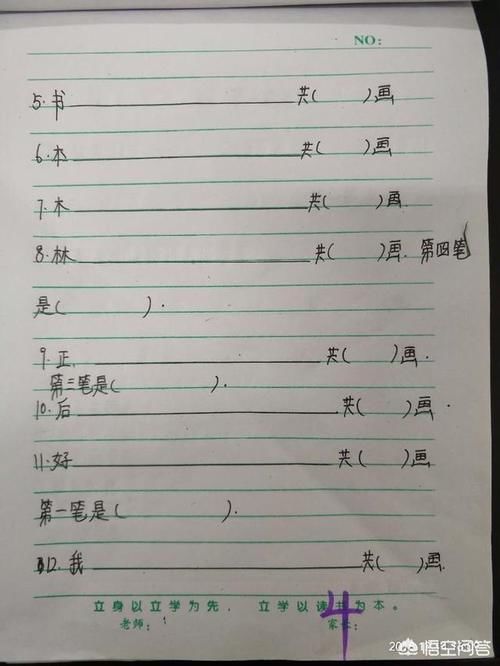 NO:
5.书 共( )画
6.本 共( )画
7.木 共( )画
8.林 共( )画.第四笔
是( ).
9.正. 共( )画.
第三笔是( ).
10.后 共( )画.
11.好 共( )画
第一笔是( ).
12.我 共( )画.
立身以立学为先， 立学以读书为本。
老师: 家长:
4
悟空问答